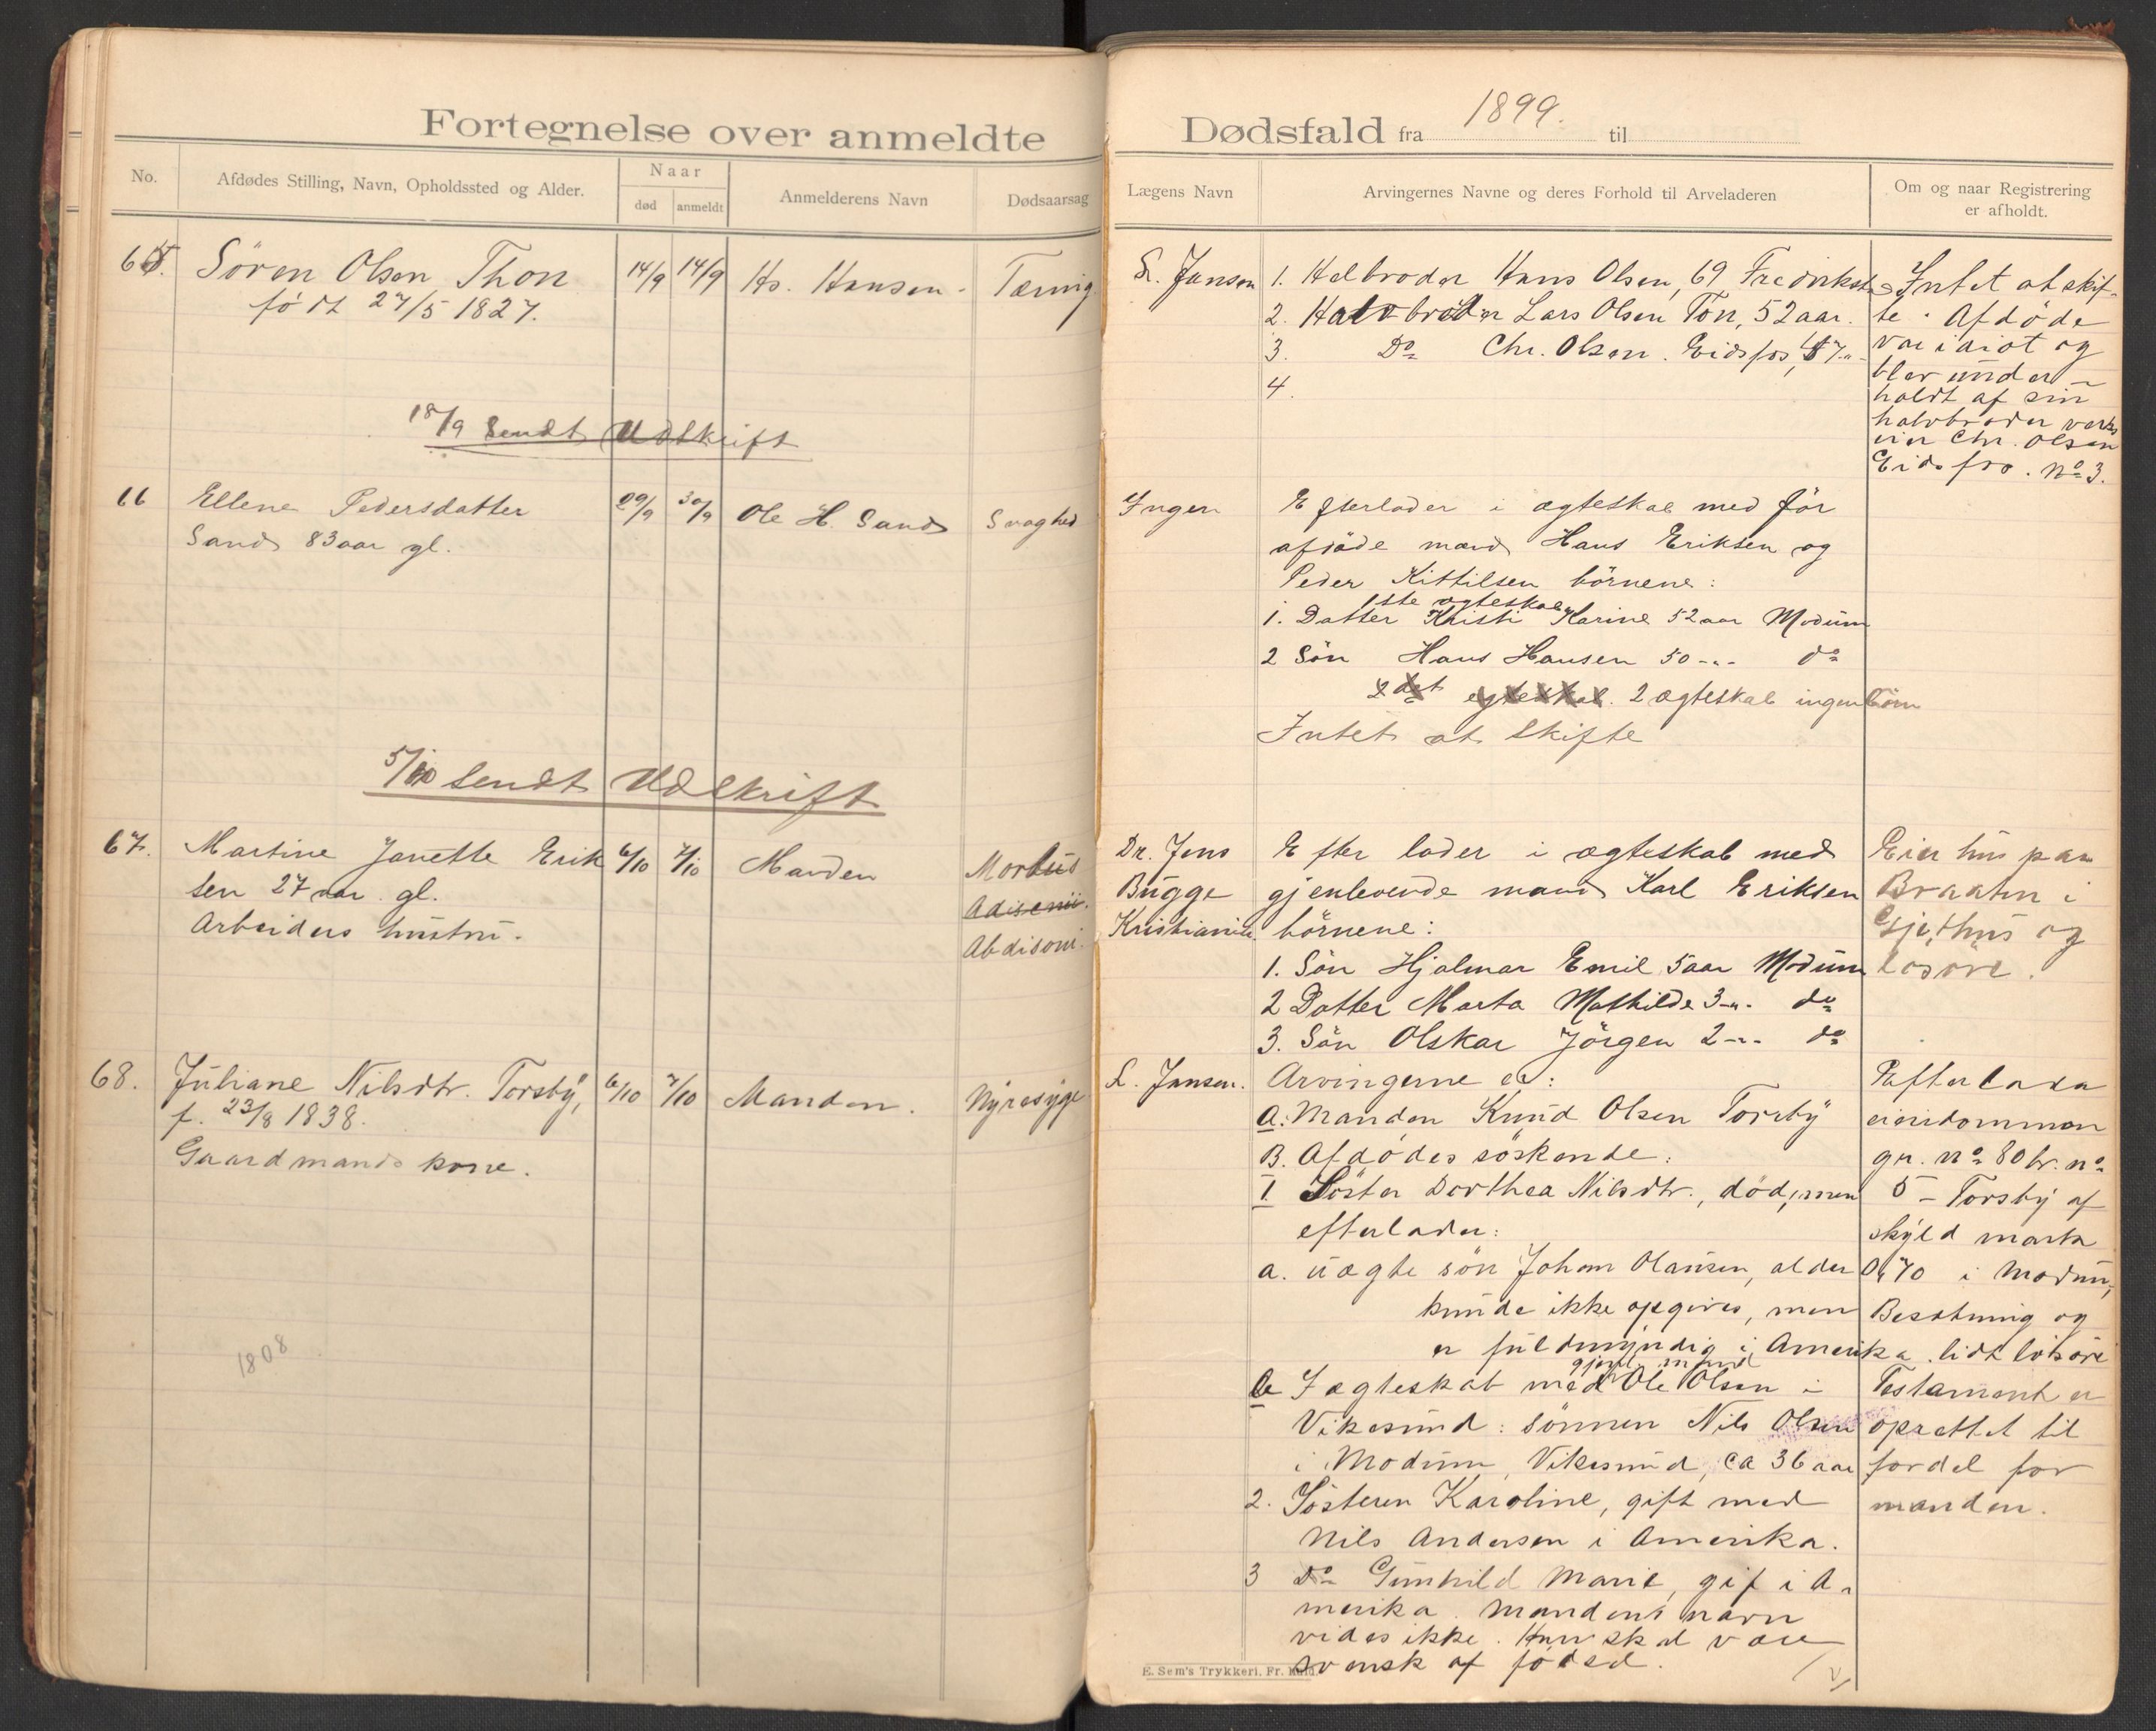 Fortegnelse over anmeldte
No.
Afdødes Stilling, Navn, Opholdssted og Alder.
Naar
død
anmeldt
Anmelderens Navn
Dødsaarsag
65. Sören Olsen Thon 14/9 14/9 Hs. Hansen. Tæring
född 27/5 1827.
18/9 Sendt Udskrift
66 Ellene Pedersdatter 29/9 30/9 Ole H. Sand Svaghed
Sand 83 aar gl.
5/10 Sendt Udskrift
67. Martine Janette Erik 6/10 7/10 Manden Morbus
sen 27 aar gl. Adisenii.
Arbeiders hustru. Abdisoni.
68. Juliane Nilsdtr. Torsby, 6/10 7/10 Manden. Nyresyge
f. 23/8 1838.
Gaardmands kone.
1808
Dødsfald fra 1899. til
Lægens Navn
Arvingernes Navne og deres Forhold til Arveladeren
Om og naar Registrering
er afholdt.
L. Jansen 1. Helbroder Hans Olsen, 69, Fredrikst
2. Halvbroder Lars Olsen Ton, 52 aar.
3. Do Chr. Olsen. Eidsfos, 47 "
4.
Intet at skif-
te. Afdöde
var idiot og
blev under-
holdt af sin
halvbroder værks
eier Chr. Olsen
Eidsfos. No 3.
Ingen Efterlader i ægteskab med för
afdöde mand Hans Eriksen og
Peder Kittilsen börnene:
1ste ægteskab
1. Datter Kristi Karine 52 aar Modum
2 Sön Hans Hansen 50 -"- do
2det egteskab. 2 ægteskab ingen börn
Intet at skifte
Dr. Jens Efter lader i ægteskab med
Bugge gjenlevende mand Karl Eriksen
Kristiania. börnene:
1. Sön Hjalmar Emil 5 aar Modum
2 Datter Marta Mathilde 3 -"- do
3. Sön Olskar Jörgen 2 -"- do
Eier hus paa
Braaten i
Gjethus og
lösöre.
L. Jansen. Arvingerne er:
a. Manden Knud Olsen Torsby
B. Afdödes söskende:
1 Söster Dorthea Nilsdtr., död, men
efterlader:
a. uægte sön Johan Olausen, alder
kunde ikke opgives, men
er fuldmyndig i Amerika.
gjenl. mand
b I ægteskab med Ole Olsen i
Vikesund: sönnen Nils Olsen
i Modum, Vikesund, ca 36 aar
2. Sösteren Karoline, gift med
Nils Andersen i Amerika.
3 Do Gunhild Marie, gif i A-
merika. Mandens navn
vides ikke. Han skal være
svensk af födsel.
Efterlader
eiendommen
gr. no 80 br. no
5 - Torsby af
skyld mark
0,70 i Modum,
Besætning og
lidt lösöre
Testament er
oprettet til
fordel for
manden.
E. Sem's Trykkeri, Fr. Hald.